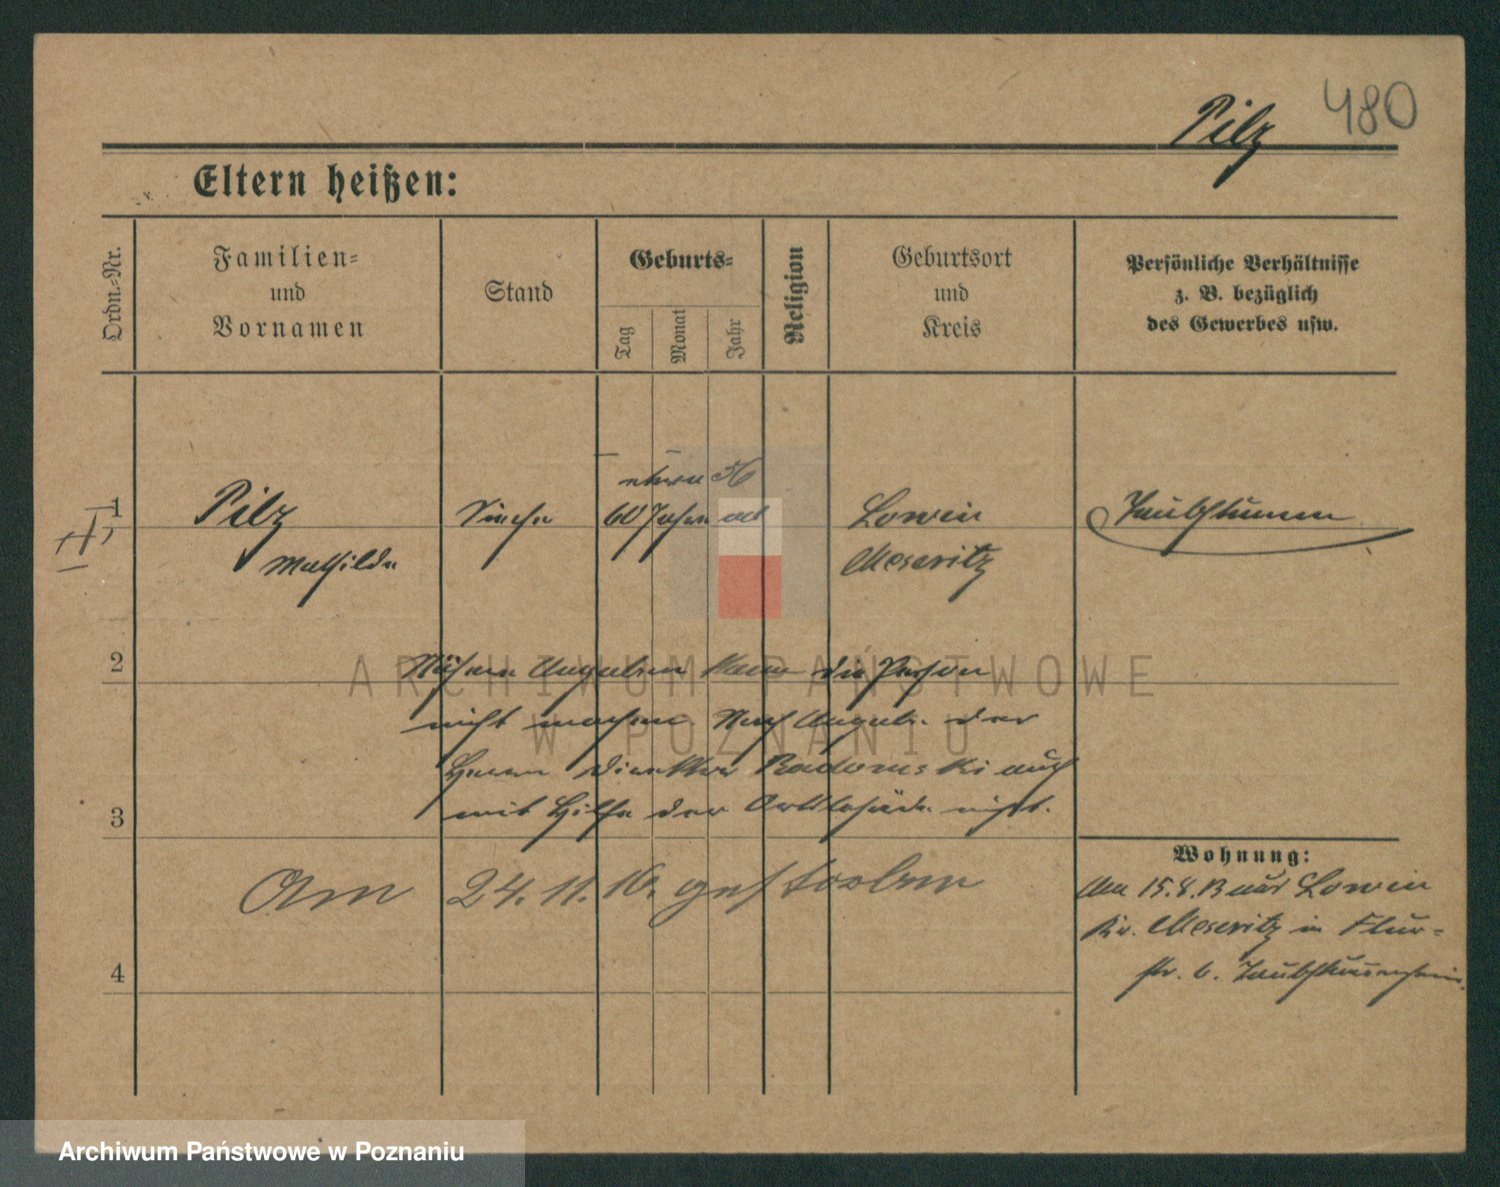 480
Pilz
Eltern heißen:
Ordn.-Nr.
Familien-
und
Vornamen
Stand
Geburts-
Tag
Monat
Jahr
Religion
Geburtsort
und
Kreis
Persönliche Verhältnisse
z. B. bezüglich
des Gewerbes usw.
etwa 56
1 Pilz 60 Jahre alt Lowin Taubstumm
Mathilde Meseritz
2 Nähere Angaben kann die Person
nicht machen. Nach Angab. der
Herrn Direktor Radomski auch
3 mit Hilfe der nicht.
Wohnung:
Am 24.11.16. gestorben
Am 15.8.13 aus Lowin
Kr. Meseritz in Flur-
4 str. 6. Taubstummenheim.
ARCHIWUM PAŃSTWOWE
W POZNANIU
Archiwum Państwowe w Poznaniu